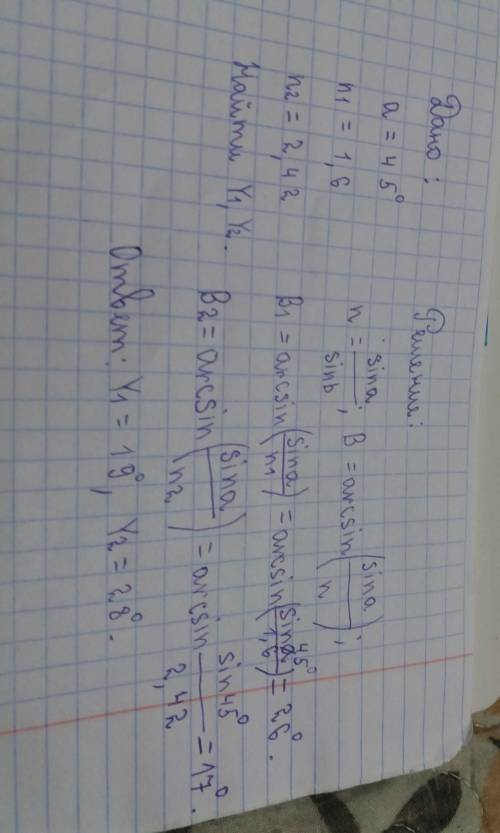 Дано:
a = 45°
n1 = 1,6
n2 = 2,42
Найти Y1, Y2.
Решение:
n = sina/sinb; B = arcsin(sina/n);
B1 = arcsin(sina/n1) = arcsin(sin45°/1,6) = 26°.
B2 = arcsin(sina/n2) = arcsin sin45°/2,42 = 17°.
Ответ: Y1 = 19°, Y2 = 28°.